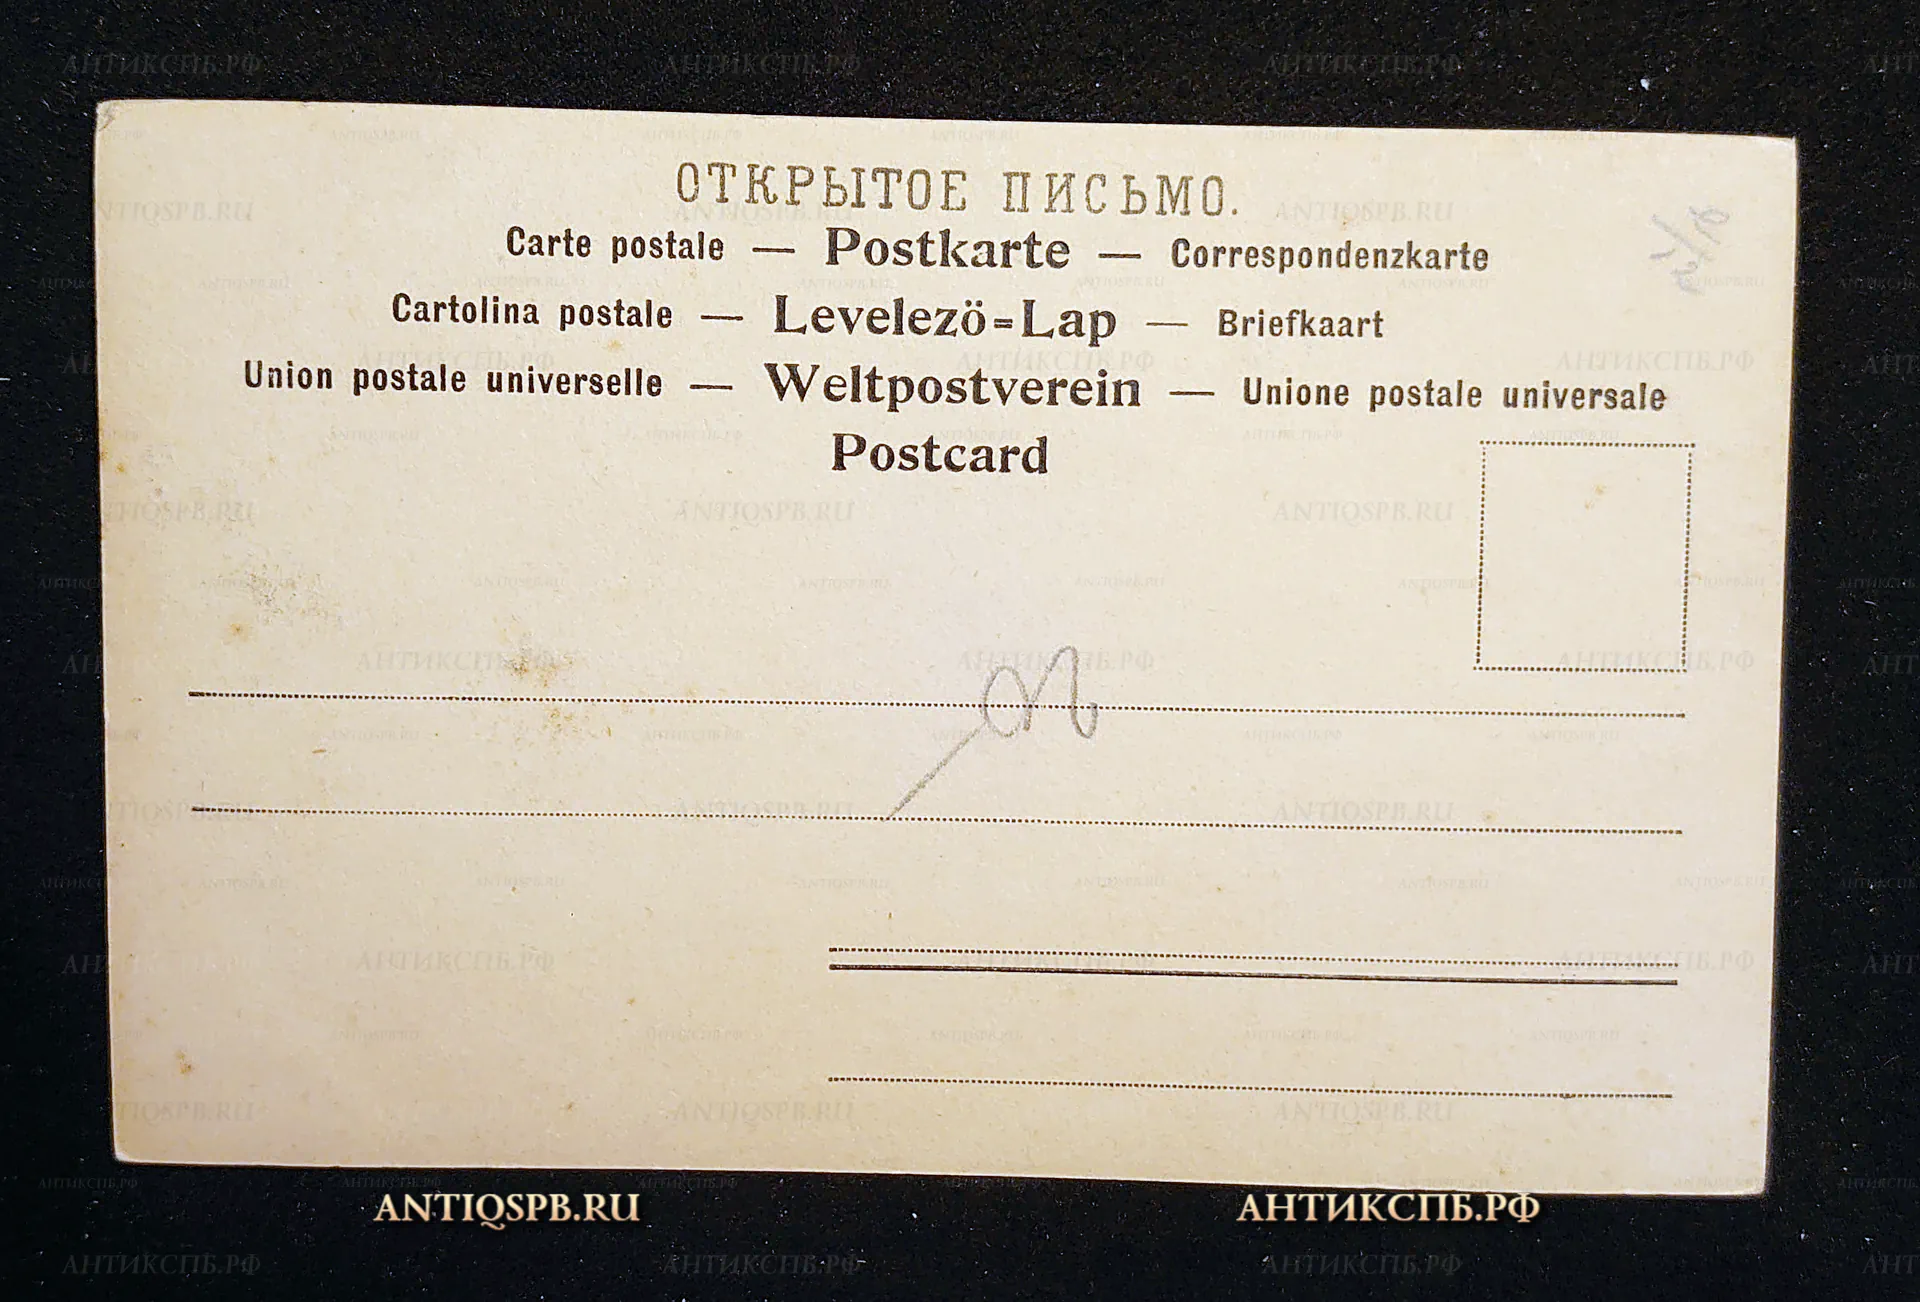 ОТКРЫТОЕ ПИСЬМО.
Carte postale — Postkarte — Correspondenzkarte
Cartolina postale — Levelezö=Lap — Briefkaart
Union postale universelle — Weltpostverein — Unione postale universale
Postcard
ANTIQSPB.RU АНТИКСПБ.РФ